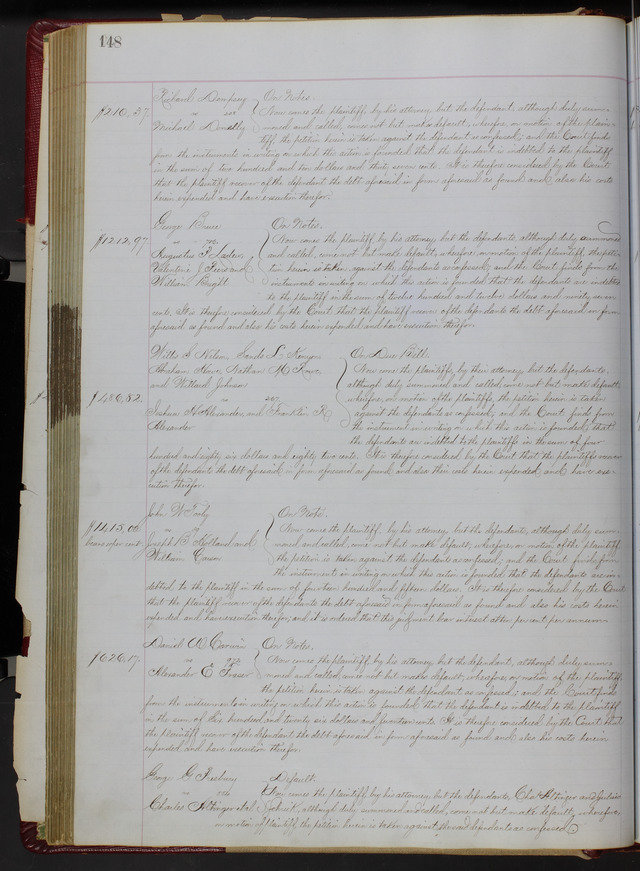 148
Richard Dempsey On Notes.
$210,37. Now comes the plaintiff, by his attorney but the defendant, although duly summoned
Michael Donally and called, comes not but makes default, wherefore, on motion of the plaintiff
the petition herein is taken against the defendant as confessed; and the Court finds
from the instruments in writing on which this action is founded that the defendant is indebted to the plaintiff
in the sum of two hundred and ten dollars and thirty seven cents. It is therefore considered by the Court
that the plaintiff recover of the defendant the debt aforesaid in form aforesaid as found and also his costs
herein expended and have execution therefor.
George Bruce On Notes.
$1212,97 Now comes the plaintiff by his attorney but the defendants, although duly summoned
Augustus and called, come not but make default, wherefore, on motion of the plaintiff, the petition
Valentine J and herein is taken against the defendants as confessed; and the Court finds from the
William Knight instruments in writing on which this action is founded that the defendants are indebted
to the plaintiff in the sum of twelve hundred and twelve dollars and ninety seven
cents. It is therefore considered by the Court that the plaintiff recover of the defendants the debt aforesaid in form
aforesaid as found and also his costs herein expended and have execution therefor.
Willis S. Nelson, On Due Bill.
Abraham Howe, Nathan M Now come the plaintiffs, by their attorney but the defendants
and Willard Johnson although duly summoned and called, come not but make default,
$486,82. vs 207 wherefore, on motion of the plaintiffs, the petition herein is taken
Joshua H Alexander and Franklin against the defendants as confessed; and the Court finds from
Alexander the instrument in writing on which this action is founded, that
the defendants are indebted to the plaintiffs in the sum of four
hundred and eighty six dollars and eighty two cents. It is therefore considered by the Court that the plaintiffs recover
of the defendants the debt aforesaid in form aforesaid as found and also their costs herein expended and have execution
therefor.
John W On Note.
$1415,00 Now comes the plaintiff, by his attorney, but the defendants, although duly summoned
10 per cent Joseph Holland and and called, come not but make default; wherefore, on motion of the plaintiff,
William the petition is taken against the defendants as confessed; and the Court finds from
the instruments in writing on which this action is founded that the defendants are indebted
to the plaintiff in the sum of fourteen hundred and fifteen dollars. It is therefore considered by the Court
that the plaintiff recover of the defendants the debt aforesaid in form aforesaid as found and also his costs herein
expended and have execution therefor; and it is ordered that this judgment bear interest at ten per cent per annum
Daniel W On Notes.
$626.17. Now comes the plaintiff, by his attorney but the defendant, although duly summoned
Alexander E Fraser and called, comes not but makes default; wherefore, on motion of the plaintiff,
the petition herein is taken against the defendant as confessed; and the Court finds
from the instruments in writing on which this action is founded, that the defendant is indebted to the plaintiff
in the sum of Six hundred and twenty six dollars and seventeen cents. It is therefore considered by the Court that
the plaintiff recover of the defendant the debt aforesaid in form aforesaid as found and also his costs herein
expended and have execution therefor.
George G Default.
Now comes the plaintiff by his attorney but the defendants, Chas Altinger and
Charles Altinger et al although duly summoned and called, come not but make default, wherefore
on motion of plaintiff, the petition herein is taken against the said defendants as confessed.